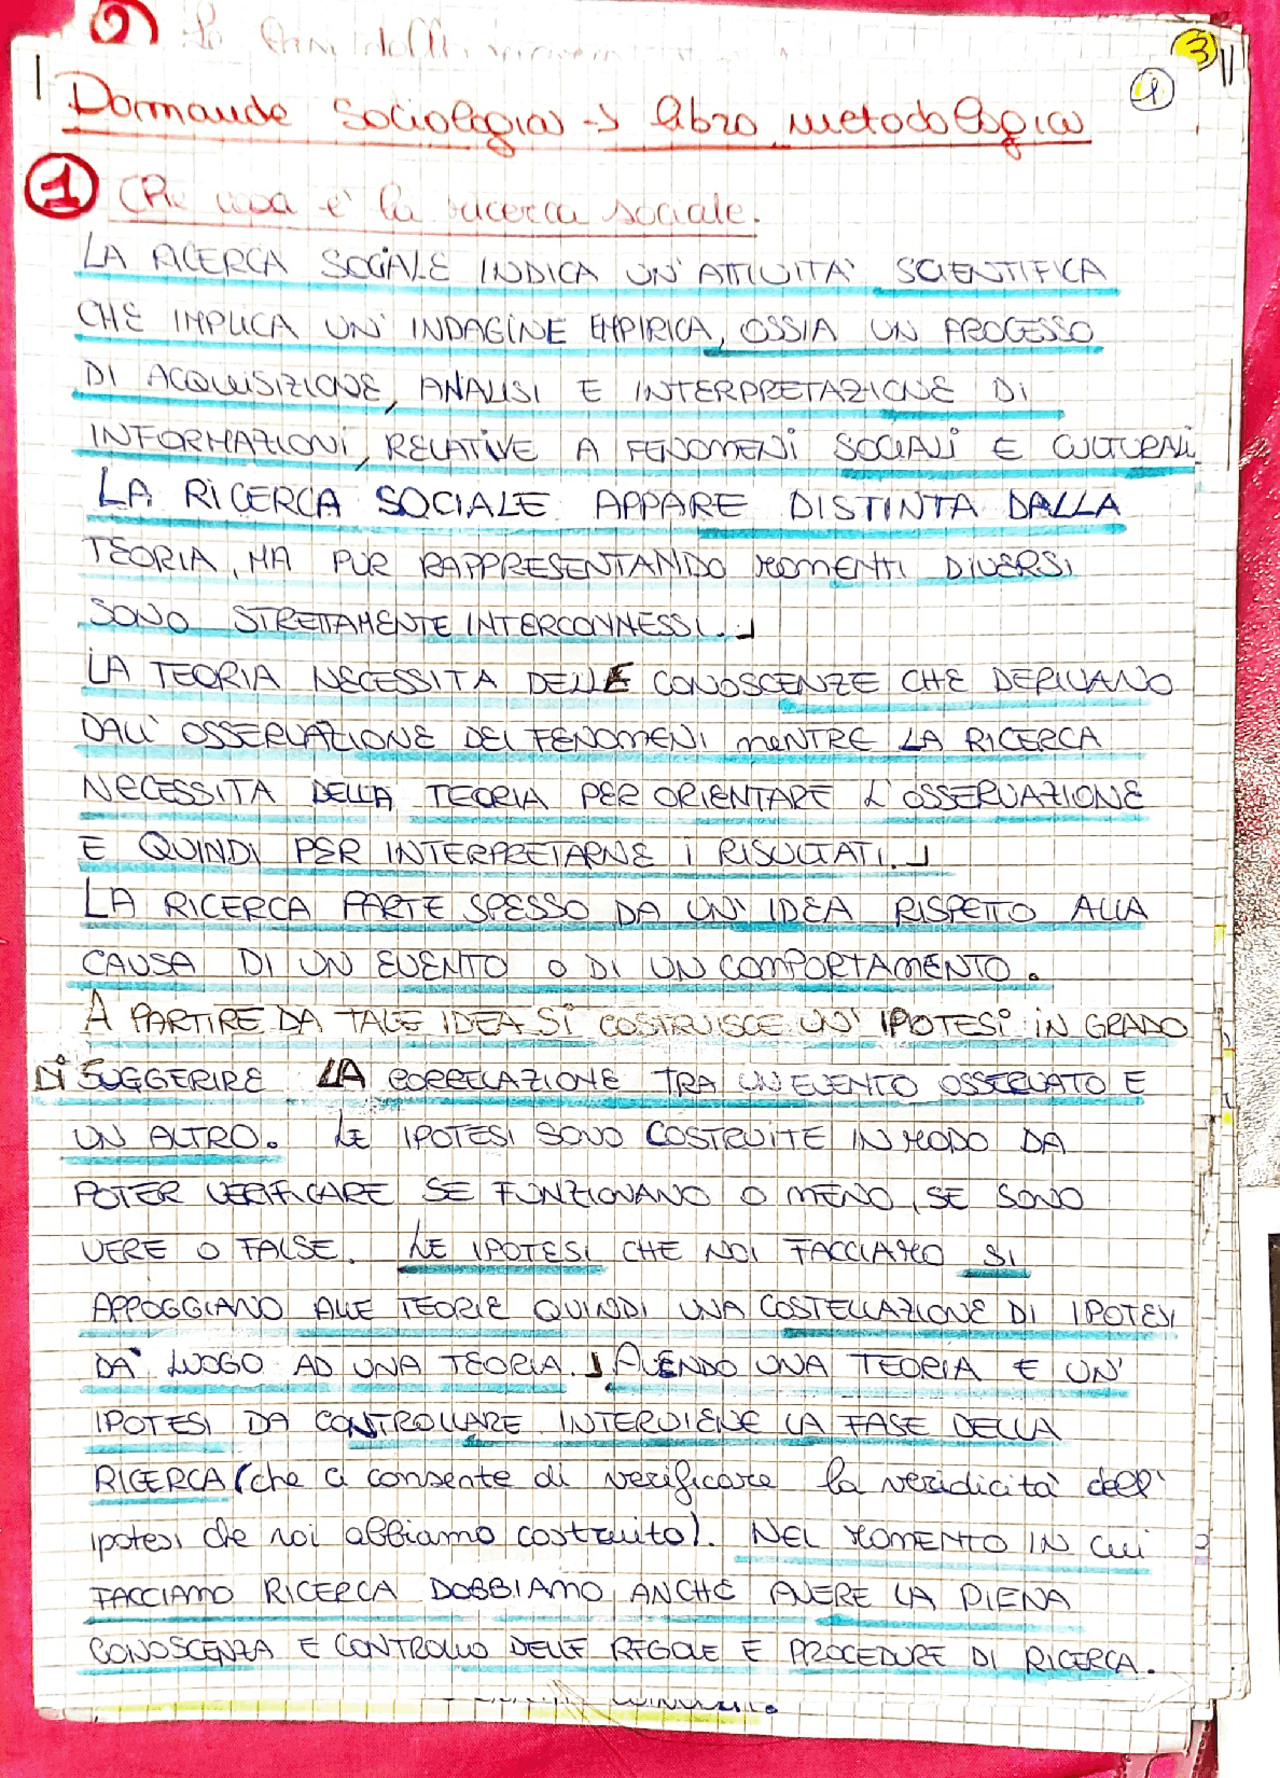 3
1
Domande Sociologia → libro metodologia
1 Che cosa è la ricerca sociale.
LA RICERCA SOCIALE INDICA UN'ATTIVITA' SCIENTIFICA
CHE IMPLICA UN'INDAGINE EMPIRICA, OSSIA UN PROCESSO
DI ACQUISIZIONE, ANALISI E INTERPRETAZIONE DI
INFORMAZIONI, RELATIVE A FENOMENI SOCIALI E CULTURALI.
LA RICERCA SOCIALE APPARE DISTINTA DALLA
TEORIA, MA PUR RAPPRESENTANDO MOMENTI DIVERSI
SONO STRETTAMENTE INTERCONNESSI.
LA TEORIA NECESSITA DELLE CONOSCENZE CHE DERIVANO
DALL'OSSERVAZIONE DEI FENOMENI MENTRE LA RICERCA
NECESSITA DELLA TEORIA PER ORIENTARE L'OSSERVAZIONE
E QUINDI PER INTERPRETARNE I RISULTATI.
LA RICERCA PARTE SPESSO DA UN'IDEA RISPETTO ALLA
CAUSA DI UN EVENTO O DI UN COMPORTAMENTO.
A PARTIRE DA TALE IDEA SI COSTRUISCE UN'IPOTESI IN GRADO
DI SUGGERIRE LA CORRELAZIONE TRA UN EVENTO OSSERVATO E
UN ALTRO. LE IPOTESI SONO COSTRUITE IN MODO DA
POTER VERIFICARE SE FUNZIONANO O MENO, SE SONO
VERE O FALSE. LE IPOTESI CHE NOI FACCIAMO SI
APPOGGIANO ALLE TEORIE QUINDI UNA COSTELLAZIONE DI IPOTESI
DA' LUOGO AD UNA TEORIA. AVENDO UNA TEORIA E UN'
IPOTESI DA CONTROLLARE INTERVIENE LA FASE DELLA
RICERCA (che ci consente di verificare la veridicità dell'
ipotesi che noi abbiamo costruito). NEL MOMENTO IN CUI
FACCIAMO RICERCA DOBBIAMO ANCHE AVERE LA PIENA
CONOSCENZA E CONTROLLO DELLE REGOLE E PROCEDURE DI RICERCA.